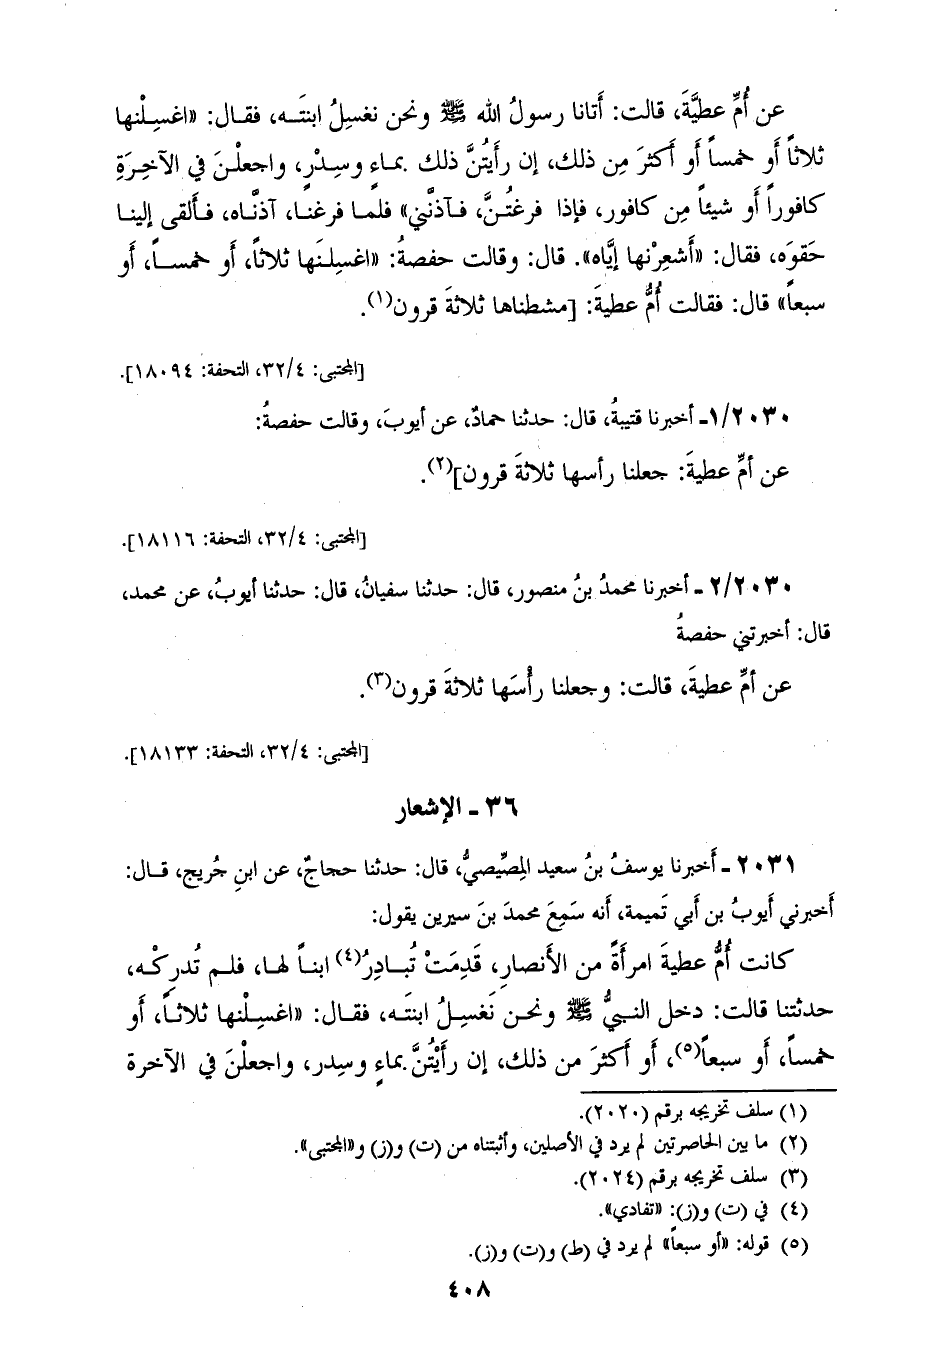 عن أُمِّ عطيَّةَ، قالت: أَتانا رسولُ الله ﷺ ونحن نغسِلُ ابنتَـه، فقـال: «اغسِـلْنها
ثلاثاً أَو خمساً أَو أكثرَ مِن ذلك، إن رأَيتُنَّ ذلك .بماءٍ وسِدْرٍ، واجعلْـنَ في الآخِـرَةِ
كافوراً أَو شيئاً مِن كافور، فإذا فرغتُـنَّ، فـآذنَّني» فلمـا فرغنـا، آذنَّـاه، فـأَلقى إلينـا
حَقوَه، فقال: «أَشعِرْنها إيَّاه». قال: وقالت حفصةُ: «اغسِلنَـها ثلاثاً، أَو خمســاً، أَو
سبعاً» قال: فقالت أُمُّ عطيةَ: [مشطناها ثلاثةَ قرون(١).
[المجتبى: ٣٢/٤، التحفة: ١٨٠٩٤].
١/٢٠٣٠ـ أخبرنا قتيبةُ، قال: حدثنا حمادٌ، عن أيوبَ، وقالت حفصةُ:
عن أمِّ عطيةَ: جعلنا رأسها ثلاثةَ قرون](٢).
[المجتبى: ٣٢/٤، التحفة: ١٨١١٦].
٢/٢٠٣٠ ـ أخبرنا محمدُ بنُ منصور، قال: حدثنا سفيانُ، قال: حدثنا أيوبُ، عن محمد،
قال: أخبرتني حفصةُ
عن أمِّ عطيةَ، قالت: وجعلنا رأْسَها ثلاثةَ قرون(٣).
[المجتبى: ٣٢/٤، التحفة: ١٨١٣٣].
٣٦ ـ الإشعار
٢٠٣١ ـ أَخبرنا يوسفُ بنُ سعيد المِصِّيصيُّ، قال: حدثنا حجاجٌ، عن ابنِ جُريج، قـال:
أَخبرني أَيوبُ بن أَبي تَميمة، أنه سَمِعَ محمدَ بنَ سيرين يقول:
كانت أُمُّ عطيةَ امرأَةً من الأَنصارِ، قَدِمَتْ تُبـادِرُ(٤) ابنـاً لهـا، فلـم تُدرِكْـه،
حدثتنا قالت: دخل النبيُّ ﷺ ونحـن نَغسِـلُ ابنتَـه، فقـال: «اغسِـلْنها ثلاثـاً، أَو
خمساً، أَو سبعاً(٥)، أَو أَكثرَ من ذلك، إن رأَيْتُنَّ .بماءٍ وسِدر، واجعلْنَ في الآخرة
(١) سلف تخريجه برقم (٢٠٢٠).
(٢) ما بين الحاصرتين لم يرد في الأصلين، وأثبتناه من (ت) و(ز) و«المجتبى».
(٣) سلف تخريجه برقم (٢٠٢٤).
(٤) في (ت) و(ز): «تفادي».
(٥) قوله: «أو سبعاً» لم يرد في (ط) و(ت) و(ز).
٤٠٨